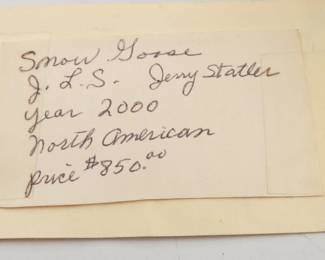 Snow Goose
J. L. S. Jerry Statler
year 2000
North American
price $850.00